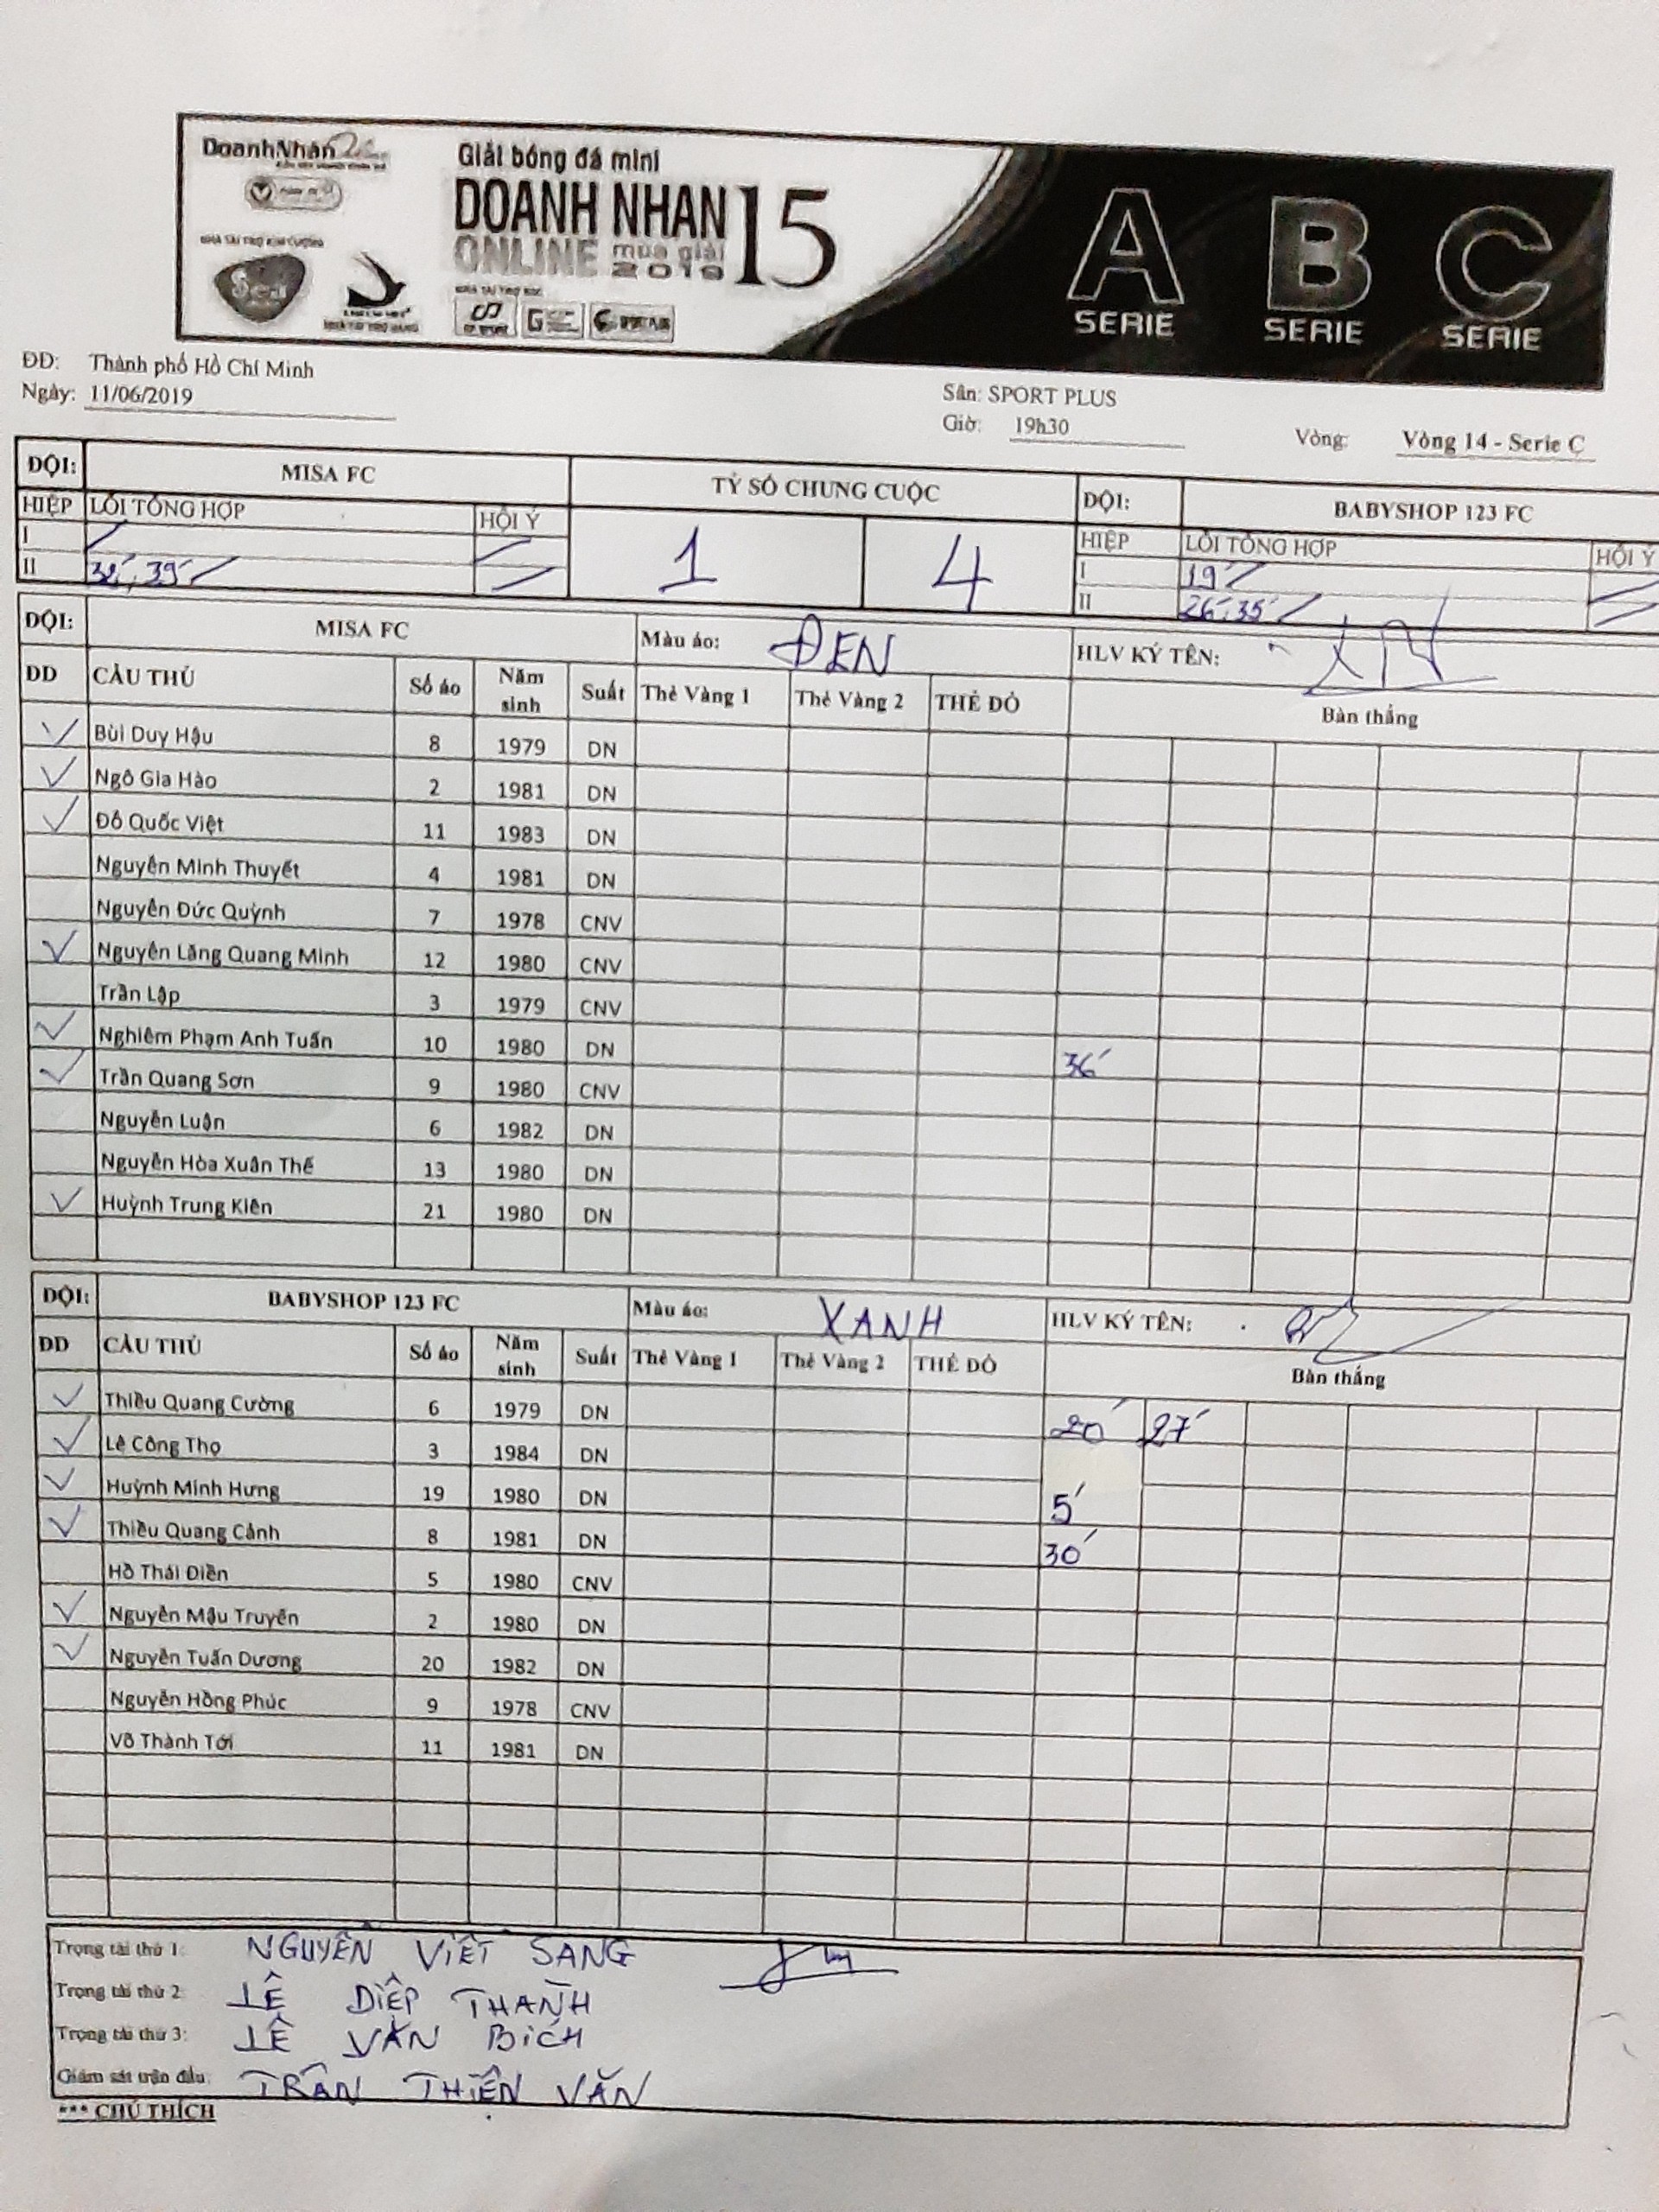 DoanhNhân
Giải bóng đá mini
DOANH NHAN
ONLINE mùa giải
2019
15
NHÀ TÀI TRỢ KIM CƯƠNG
A SERIE B SERIE C SERIE
ĐĐ: Thành phố Hồ Chí Minh
Ngày: 11/06/2019
Sân: SPORT PLUS
Giờ: 19h30
Vòng: Vòng 14 - Serie C
ĐỘI: MISA FC TỶ SỐ CHUNG CUỘC ĐỘI: BABYSHOP 123 FC
HIỆP LỖI TỔNG HỢP HỘI Ý 1 4 HIỆP LỖI TỔNG HỢP HỘI Ý
I I 19'
II 39' II 26', 35'
ĐỘI: MISA FC Màu áo: ĐEN HLV KÝ TÊN:
DD CẦU THỦ Số áo Năm sinh Suất Thẻ Vàng 1 Thẻ Vàng 2 THẺ ĐỎ Bàn thắng
Bùi Duy Hậu 8 1979 DN
Ngô Gia Hào 2 1981 DN
Đỗ Quốc Việt 11 1983 DN
Nguyễn Minh Thuyết 4 1981 DN
Nguyễn Đức Quỳnh 7 1978 CNV
Nguyễn Lăng Quang Minh 12 1980 CNV
Trần Lập 3 1979 CNV
Nghiêm Phạm Anh Tuấn 10 1980 DN 36'
Trần Quang Sơn 9 1980 CNV
Nguyễn Luận 6 1982 DN
Nguyễn Hòa Xuân Thế 13 1980 DN
Huỳnh Trung Kiên 21 1980 DN
ĐỘI: BABYSHOP 123 FC Màu áo: XANH HLV KÝ TÊN:
DD CẦU THỦ Số áo Năm sinh Suất Thẻ Vàng 1 Thẻ Vàng 2 THẺ ĐỎ Bàn thắng
Thiều Quang Cường 6 1979 DN 20' 27'
Lê Công Thọ 3 1984 DN
Huỳnh Minh Hưng 19 1980 DN 5'
Thiều Quang Cảnh 8 1981 DN 30'
Hồ Thái Điền 5 1980 CNV
Nguyễn Mậu Truyền 2 1980 DN
Nguyễn Tuấn Dương 20 1982 DN
Nguyễn Hồng Phúc 9 1978 CNV
Võ Thành Tới 11 1981 DN
Trọng tài thứ 1: NGUYỄN VIẾT SANG
Trọng tài thứ 2: LÊ DIỆP THANH
Trọng tài thứ 3: LÊ VĂN BÍCH
Giám sát trận đấu: TRẦN THIÊN VĂN
*** CHÚ THÍCH